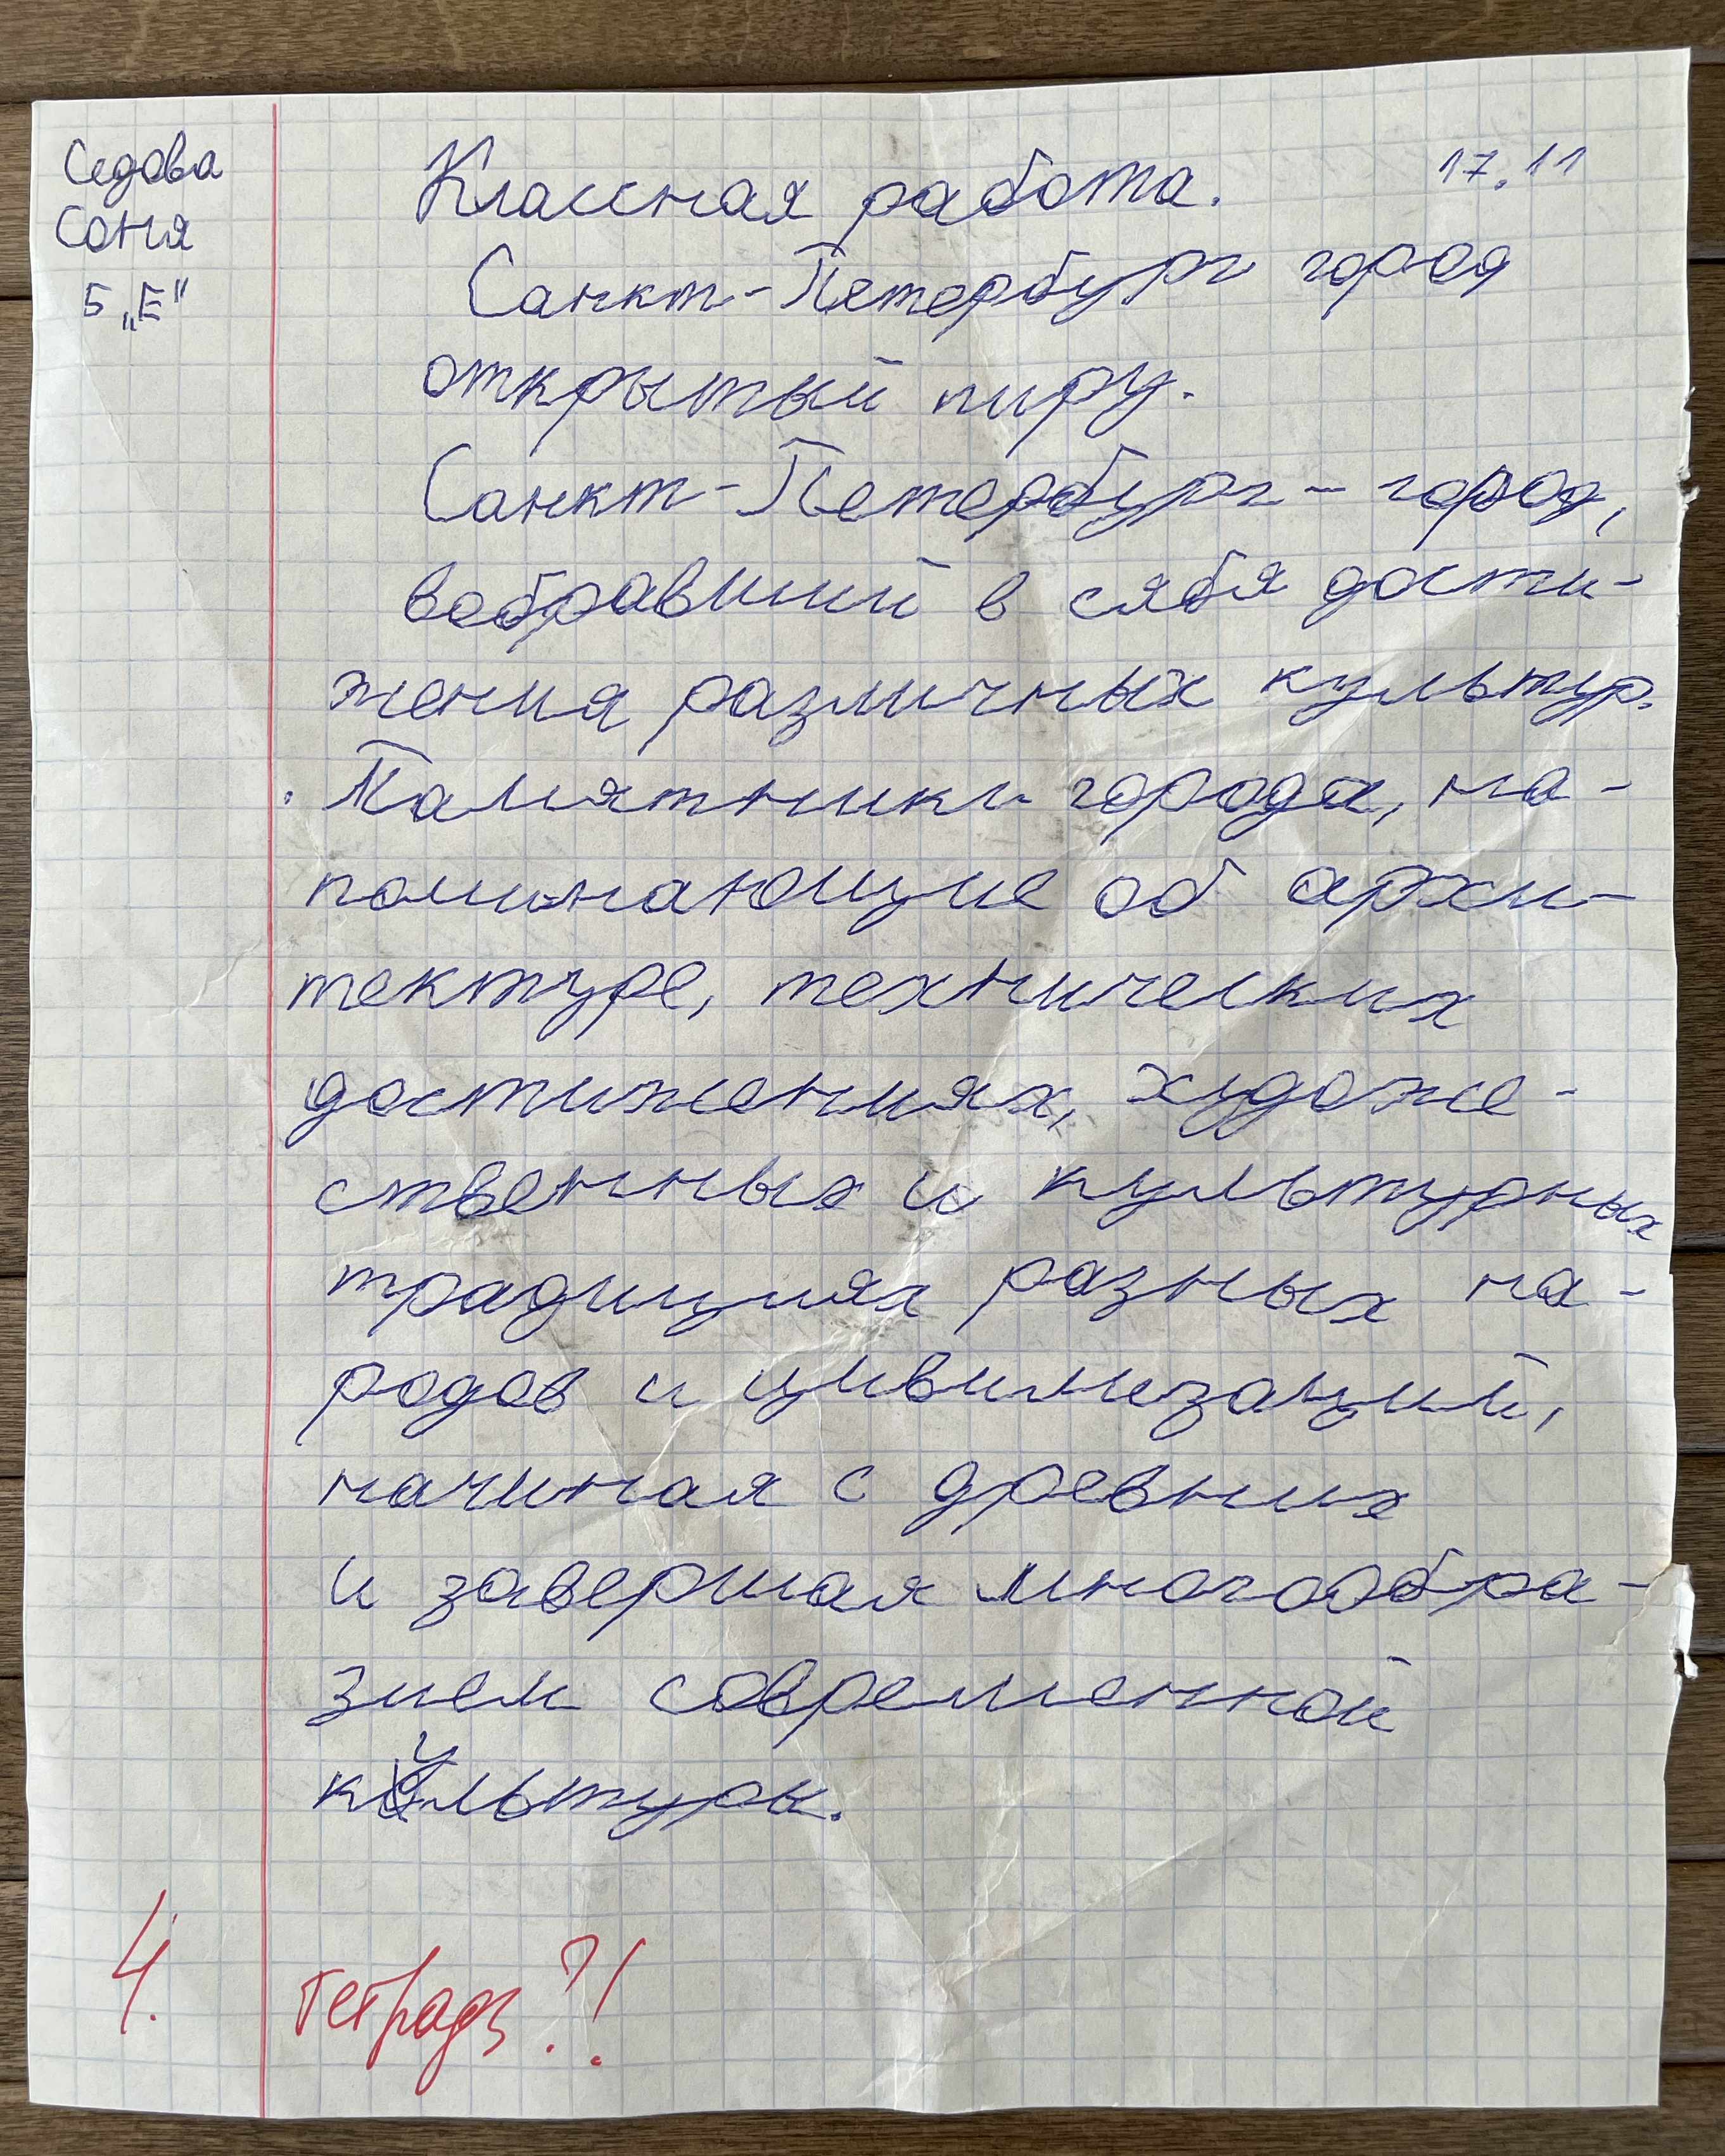 Седова
Соня
5 „Е"
Классная работа. 17.11
Санкт-Петербург город
открытый миру.
Санкт-Петербург - город,
вобравший в сябя дости-
жения различных культур.
Памятники города, на-
поминающие об архи-
тектуре, технических
достижениях, художе-
ственных и культурных
традициях разных на-
родов и цивилизаций,
начиная с древних
и завершая многообра-
зием современной
культуры.
4. тетрадь?!